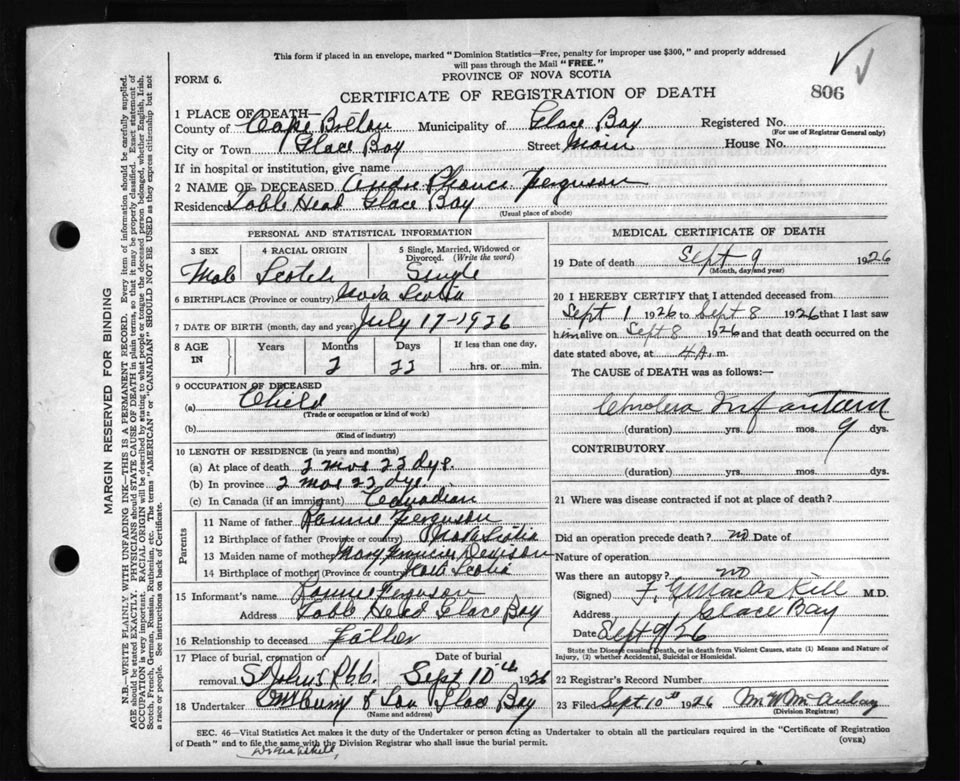 This form if placed in an envelope, marked "Dominion Statistics—Free, penalty for improper use $300," and properly addressed
will pass through the Mail "FREE."
FORM 6.
PROVINCE OF NOVA SCOTIA
806
CERTIFICATE OF REGISTRATION OF DEATH
1 PLACE OF DEATH—
County of Cape Breton Municipality of Glace Bay Registered No.
(For use of Registrar General only)
City or Town Glace Bay Street Main House No.
If in hospital or institution, give name
2 NAME OF DECEASED Ferguson
Residence Table Head Glace Bay
(Usual place of abode)
PERSONAL AND STATISTICAL INFORMATION
3 SEX 4 RACIAL ORIGIN 5 Single, Married, Widowed or Divorced. (Write the word)
Scotch Single
6 BIRTHPLACE (Province or country) Nova Scotia
7 DATE OF BIRTH (month, day and year) July 17-1926
8 AGE IN Years Months Days If less than one day,
2 22 hrs. or min.
9 OCCUPATION OF DECEASED
(a) Child
(Trade or occupation or kind of work)
(b)
(Kind of industry)
10 LENGTH OF RESIDENCE (in years and months)
(a) At place of death 2 mos 22 dys.
(b) In province 2 mos 22 dys.
(c) In Canada (if an immigrant) Canadian
Parents
11 Name of father Ferguson
12 Birthplace of father (Province or country) Nova Scotia
13 Maiden name of mother Mary
14 Birthplace of mother (Province or country) Nova Scotia
15 Informant's name Ferguson
Address Table Head Glace Bay
16 Relationship to deceased Father
17 Place of burial, cremation or removal Date of burial
Sept 10th 1926
18 Undertaker & Son Glace Bay
(Name and address)
MEDICAL CERTIFICATE OF DEATH
19 Date of death Sept 9 1926
(Month, day and year)
20 I HEREBY CERTIFY that I attended deceased from
Sept 1 1926 to Sept 8 1926 that I last saw
him alive on Sept 8 1926 and that death occurred on
date stated above, at 4 A. m.
The CAUSE of DEATH was as follows:—
Cholera Infantum
(duration) yrs. mos. 9 dys.
CONTRIBUTORY
(duration) yrs. mos. dys.
21 Where was disease contracted if not at place of death?
Did an operation precede death? no Date of
Nature of operation
Was there an autopsy? no
(Signed) M.D.
Address Glace Bay
Date Sept 9/26
State the Disease causing Death, or in death from Violent Causes, state (1) Means and Nature of
Injury, (2) whether Accidental, Suicidal or Homicidal.
22 Registrar's Record Number
23 Filed Sept 10th 1926
(Division Registrar)
SEC. 46—Vital Statistics Act makes it the duty of the Undertaker or person acting as Undertaker to obtain all the particulars required in the "Certificate of Registration
of Death" and to file the same with the Division Registrar who shall issue the burial permit.
(OVER)
MARGIN RESERVED FOR BINDING
N.B.—WRITE PLAINLY WITH UNFADING INK—THIS IS A PERMANENT RECORD. Every item of information should be carefully supplied.
AGE should be stated EXACTLY. PHYSICIANS should STATE CAUSE OF DEATH in plain terms, so that it may be properly classified. Exact statement of
OCCUPATION is very important. RACIAL ORIGIN will be described by stating to what people or tongue the deceased person belonged, whether English, Irish,
Scotch, French, German, Russian, Ruthenian, etc. The terms "AMERICAN" or "CANADIAN" SHOULD NOT BE USED as they express citizenship but not
a race or people. See instructions on back of Certificate.